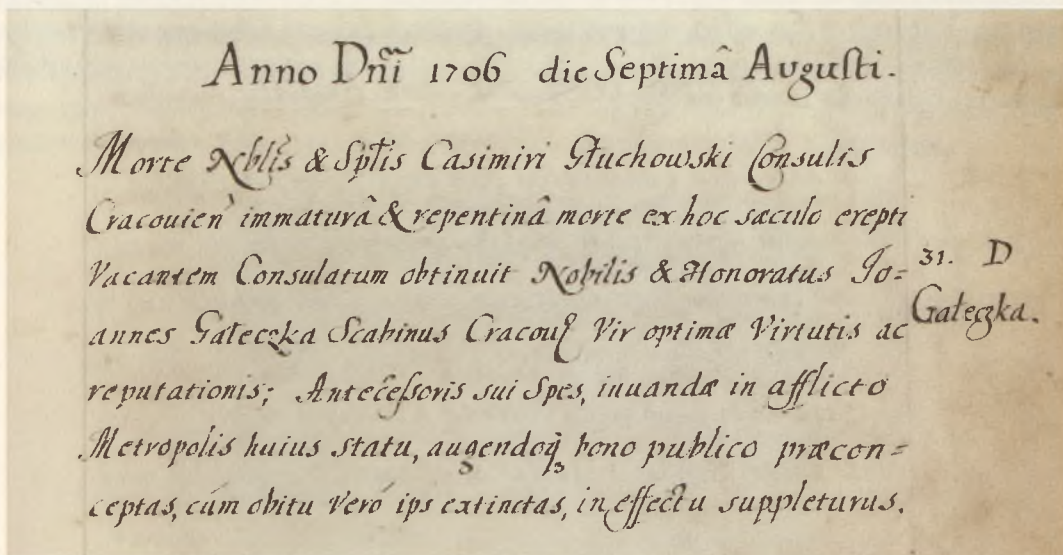 Anno Dñi 1706 die Septimâ Augusti.
Morte Nblis & Sptis Casimiri Głuchowski Consulis
Cracouien immaturâ & repentinâ morte ex hoc sæculo erepti
Vacantem Consulatum obtinuit Nobilis & Honoratus Jo=
annes Gałeczka Scabinus Cracou Vir optimæ Virtutis ac
reputationis; Antecessoris sui Spes, iuuandæ in afflicto
Metropolis huius statu, augendoq bono publico præcon=
ceptas, cum obitu Vero ips extinctas, in effectu suppleturus.
31. D
Gałeczka.